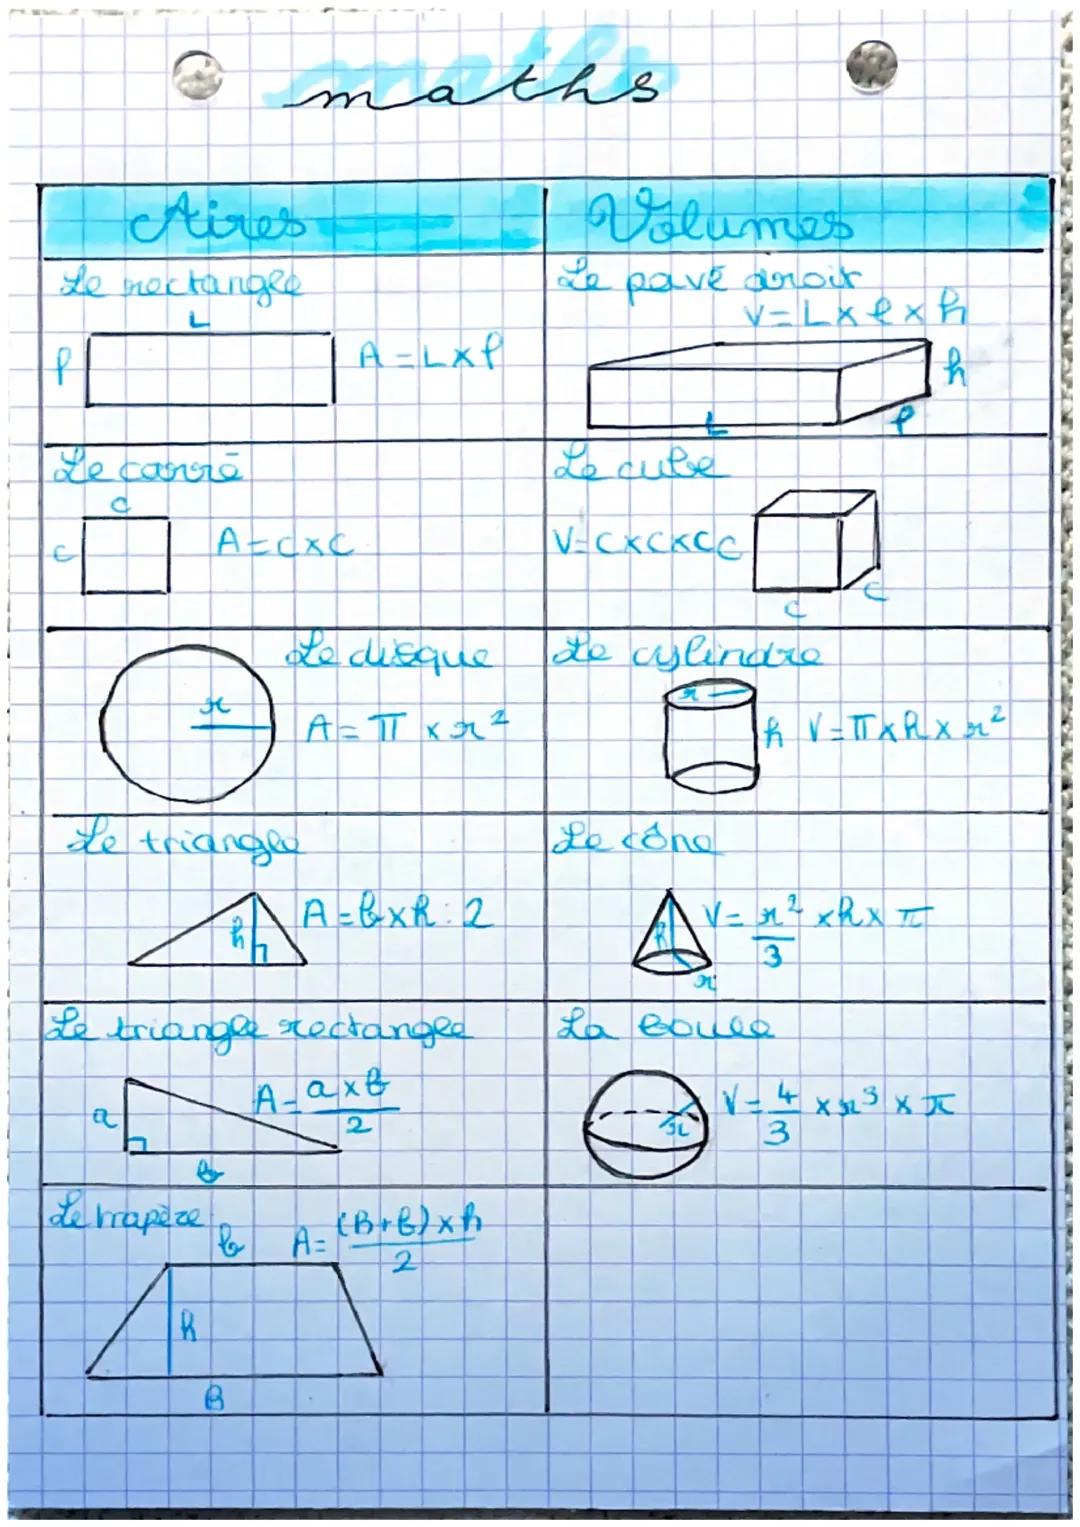 maths
Aires
Volumes
Le rectangle
L
l
A = L x l
Le pavé droit
V = L x l x h
h
L
l
Le carré
c
c
A = c x c
Le cube
V = c x c x c
c
c
c
Le disque
r
A = π x r²
Le cylindre
r
h
V = π x h x r²
Le triangle
h
A = b x h : 2
Le cône
h
r
V = r²/3 x h x π
Le triangle rectangle
a
b
A = a x b / 2
La boule
r
V = 4/3 x r³ x π
Le trapèze
b
A = (B+b) x h / 2
h
B